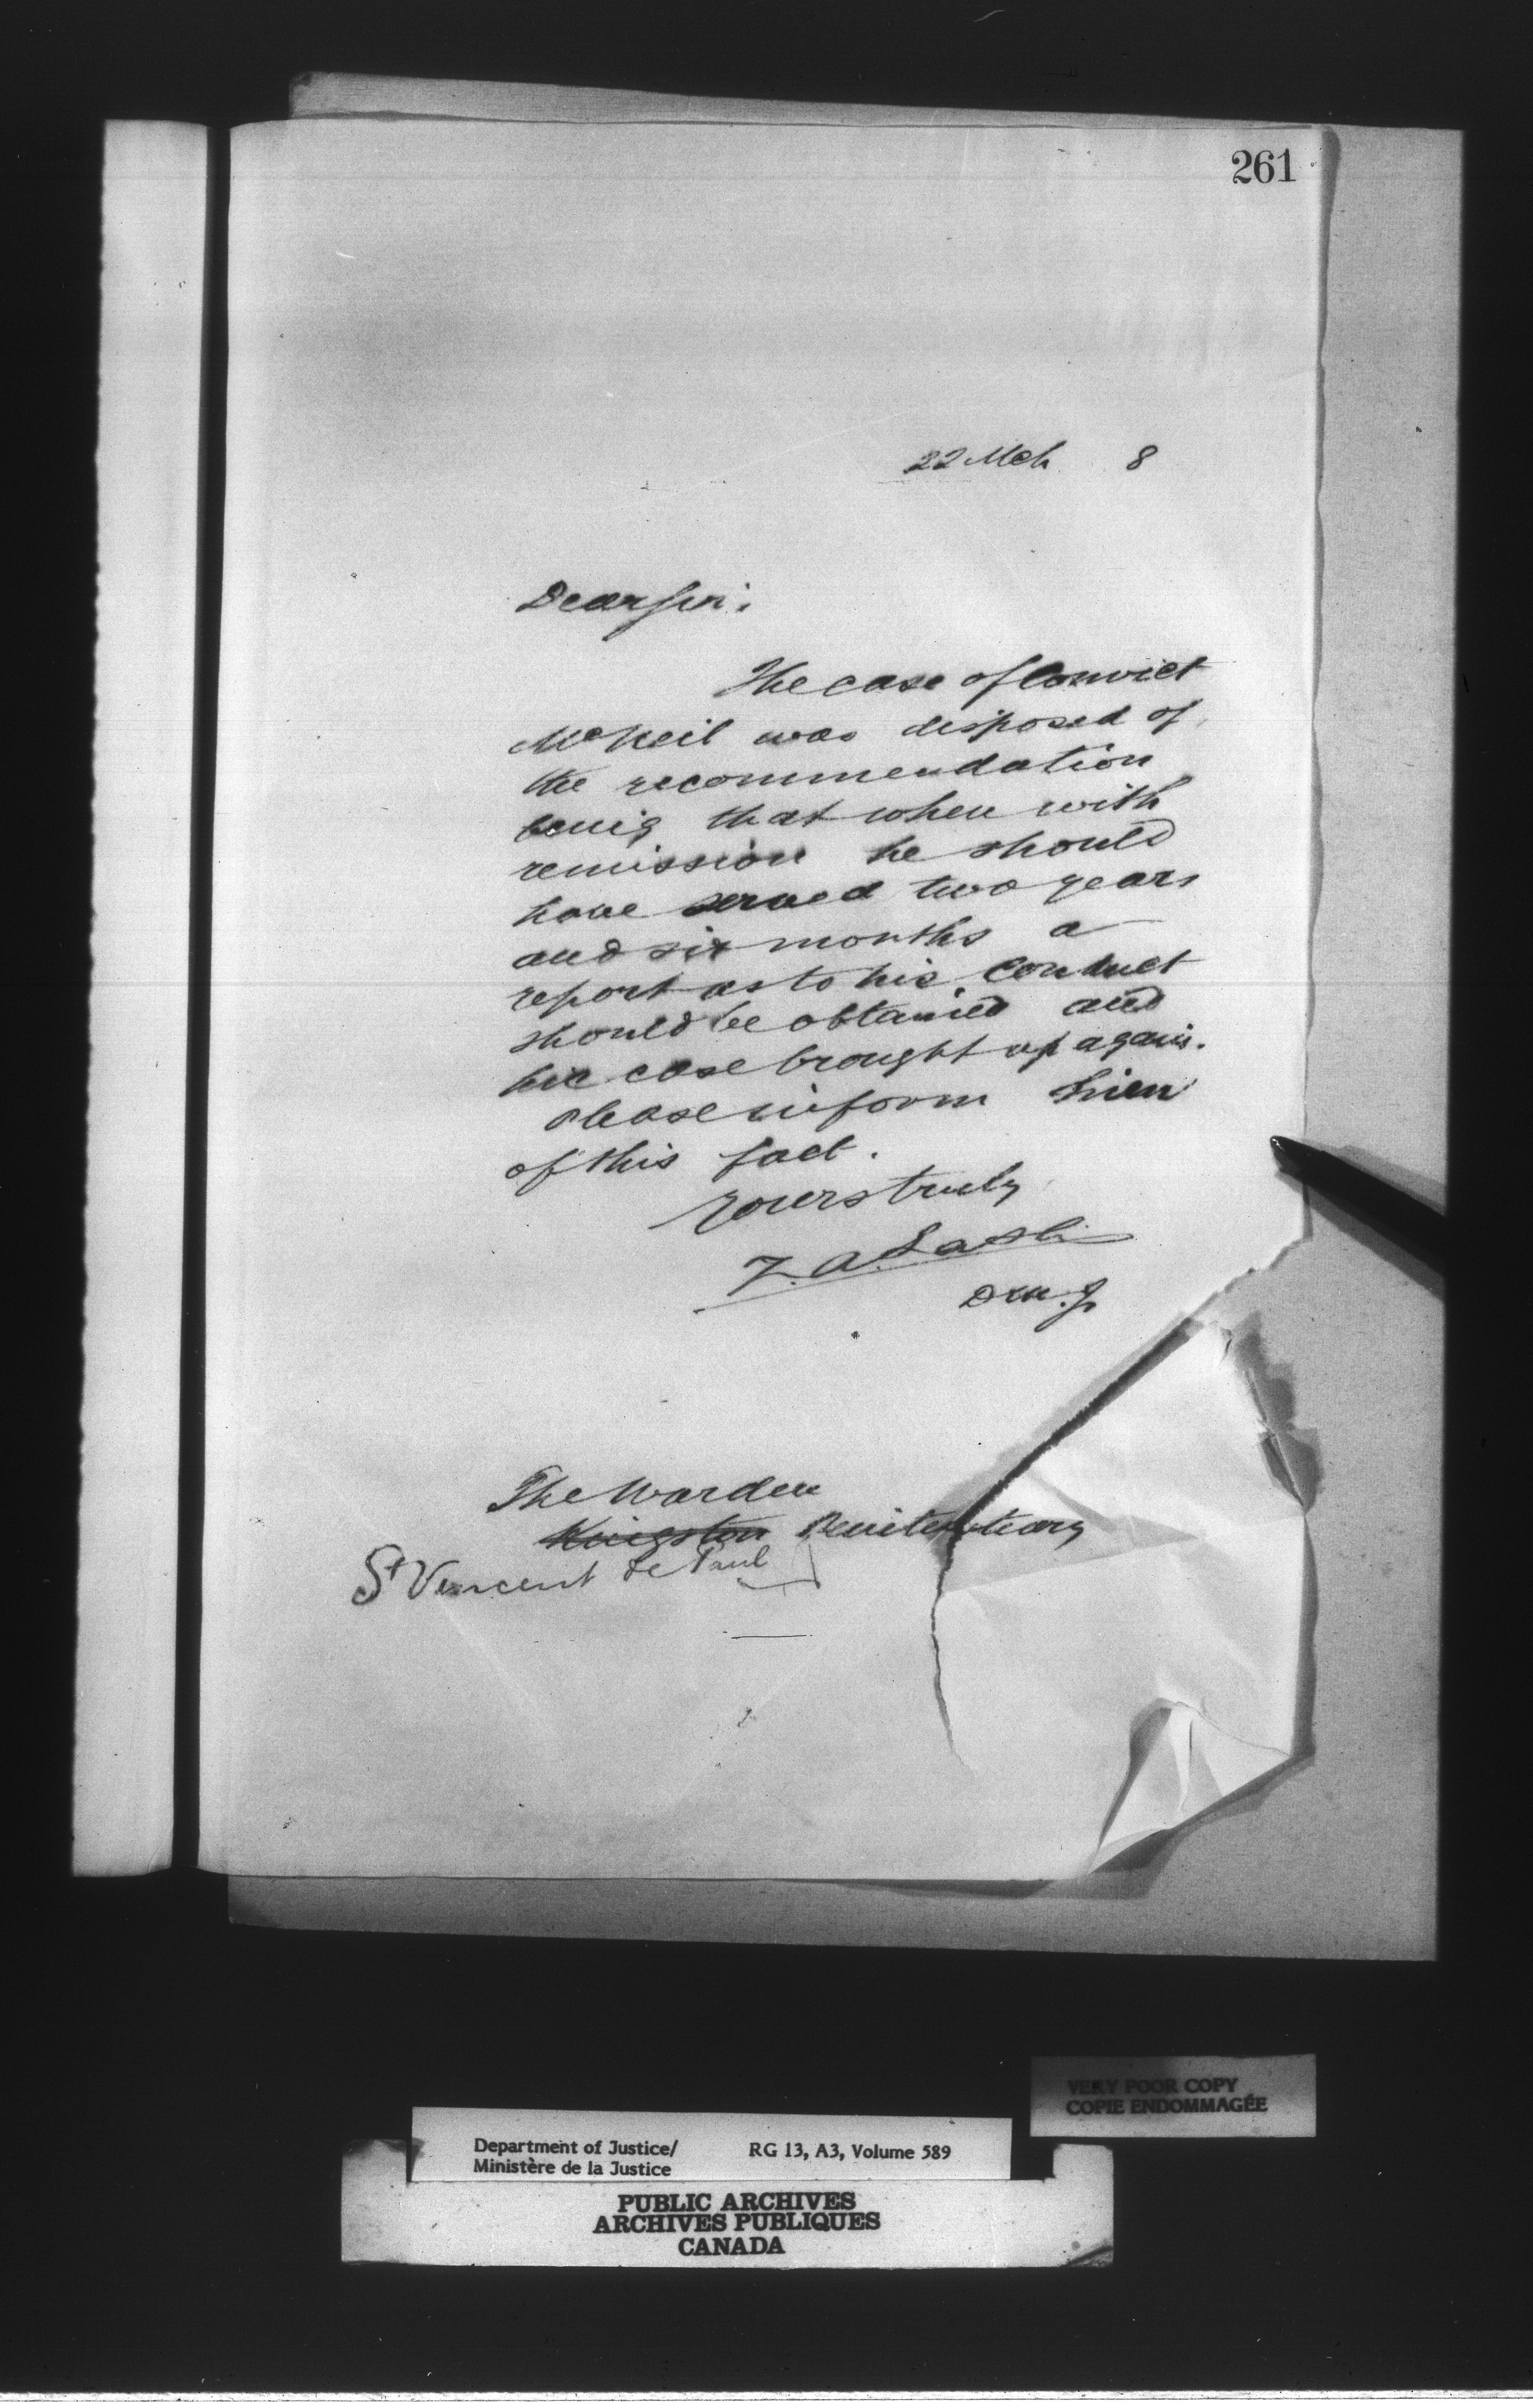 261
22 Mch 8
Dear Sir:
The case of Convict
McNeil was disposed of,
the recommendation
being that when with
remission he should
have served two years
and six months a
report as to his conduct
should be obtained and
his case brought up again.
Please inform him
of this fact.
Yours truly
Z. A. Lash
D.M.J.
The Warden
Kingston Penitentiary
St Vincent de Paul
VERY POOR COPY
COPIE ENDOMMAGÉE
Department of Justice/ RG 13, A3, Volume 589
Ministère de la Justice
PUBLIC ARCHIVES
ARCHIVES PUBLIQUES
CANADA